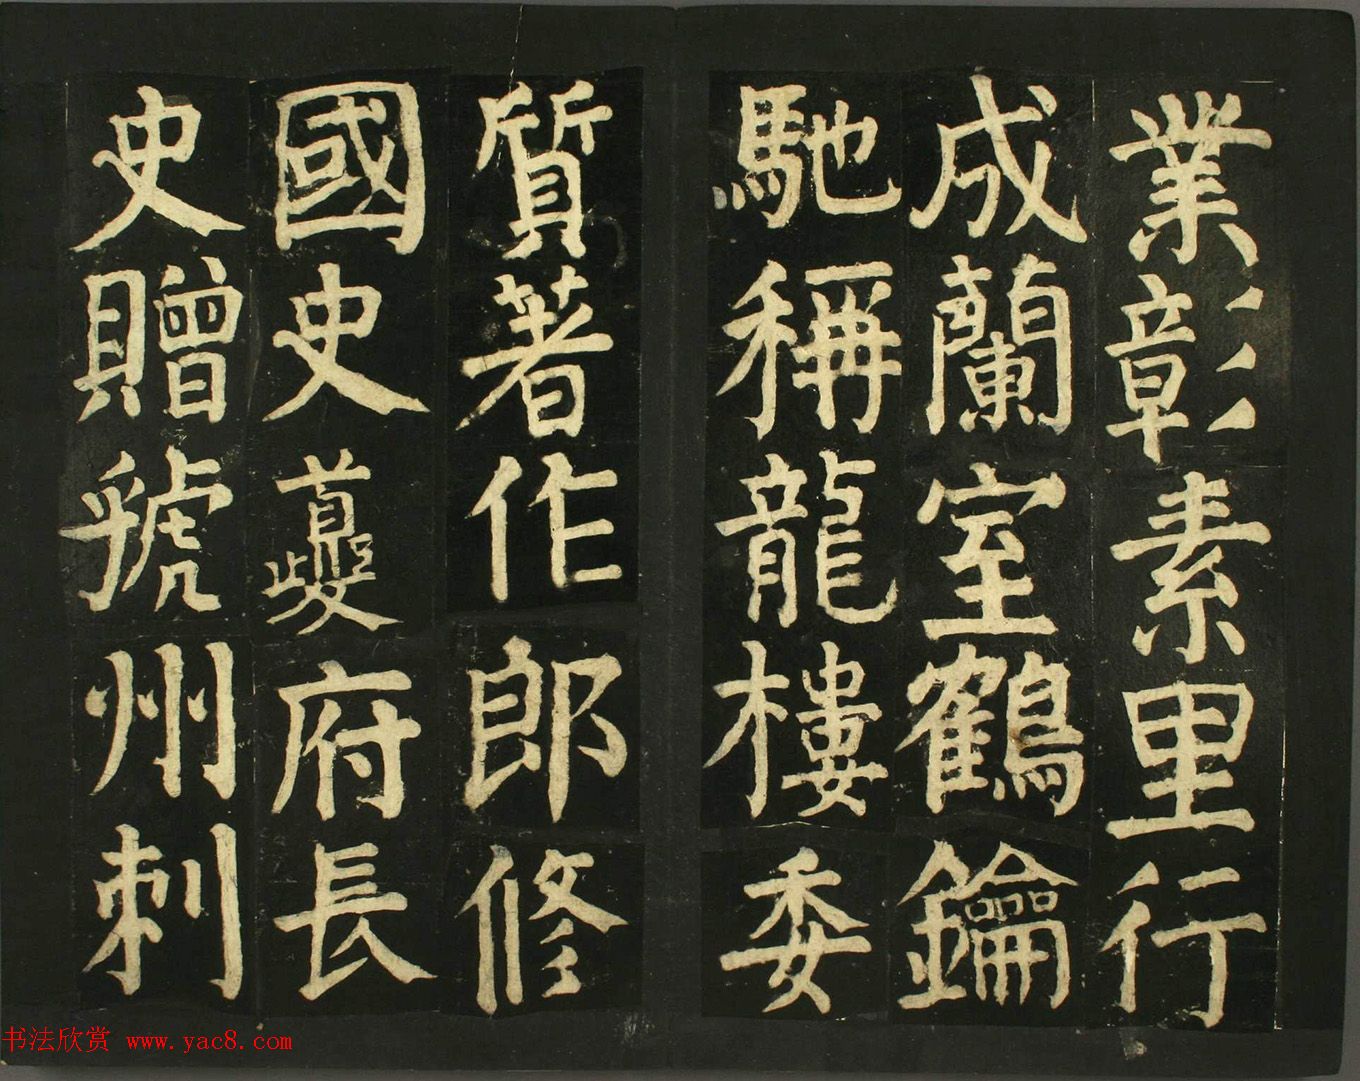 業彰素里行
成蘭室鶴鑰
馳稱龍樓委
質著作郎修
國史夔府長
史贈虢州刺
书法欣赏 www.yac8.com